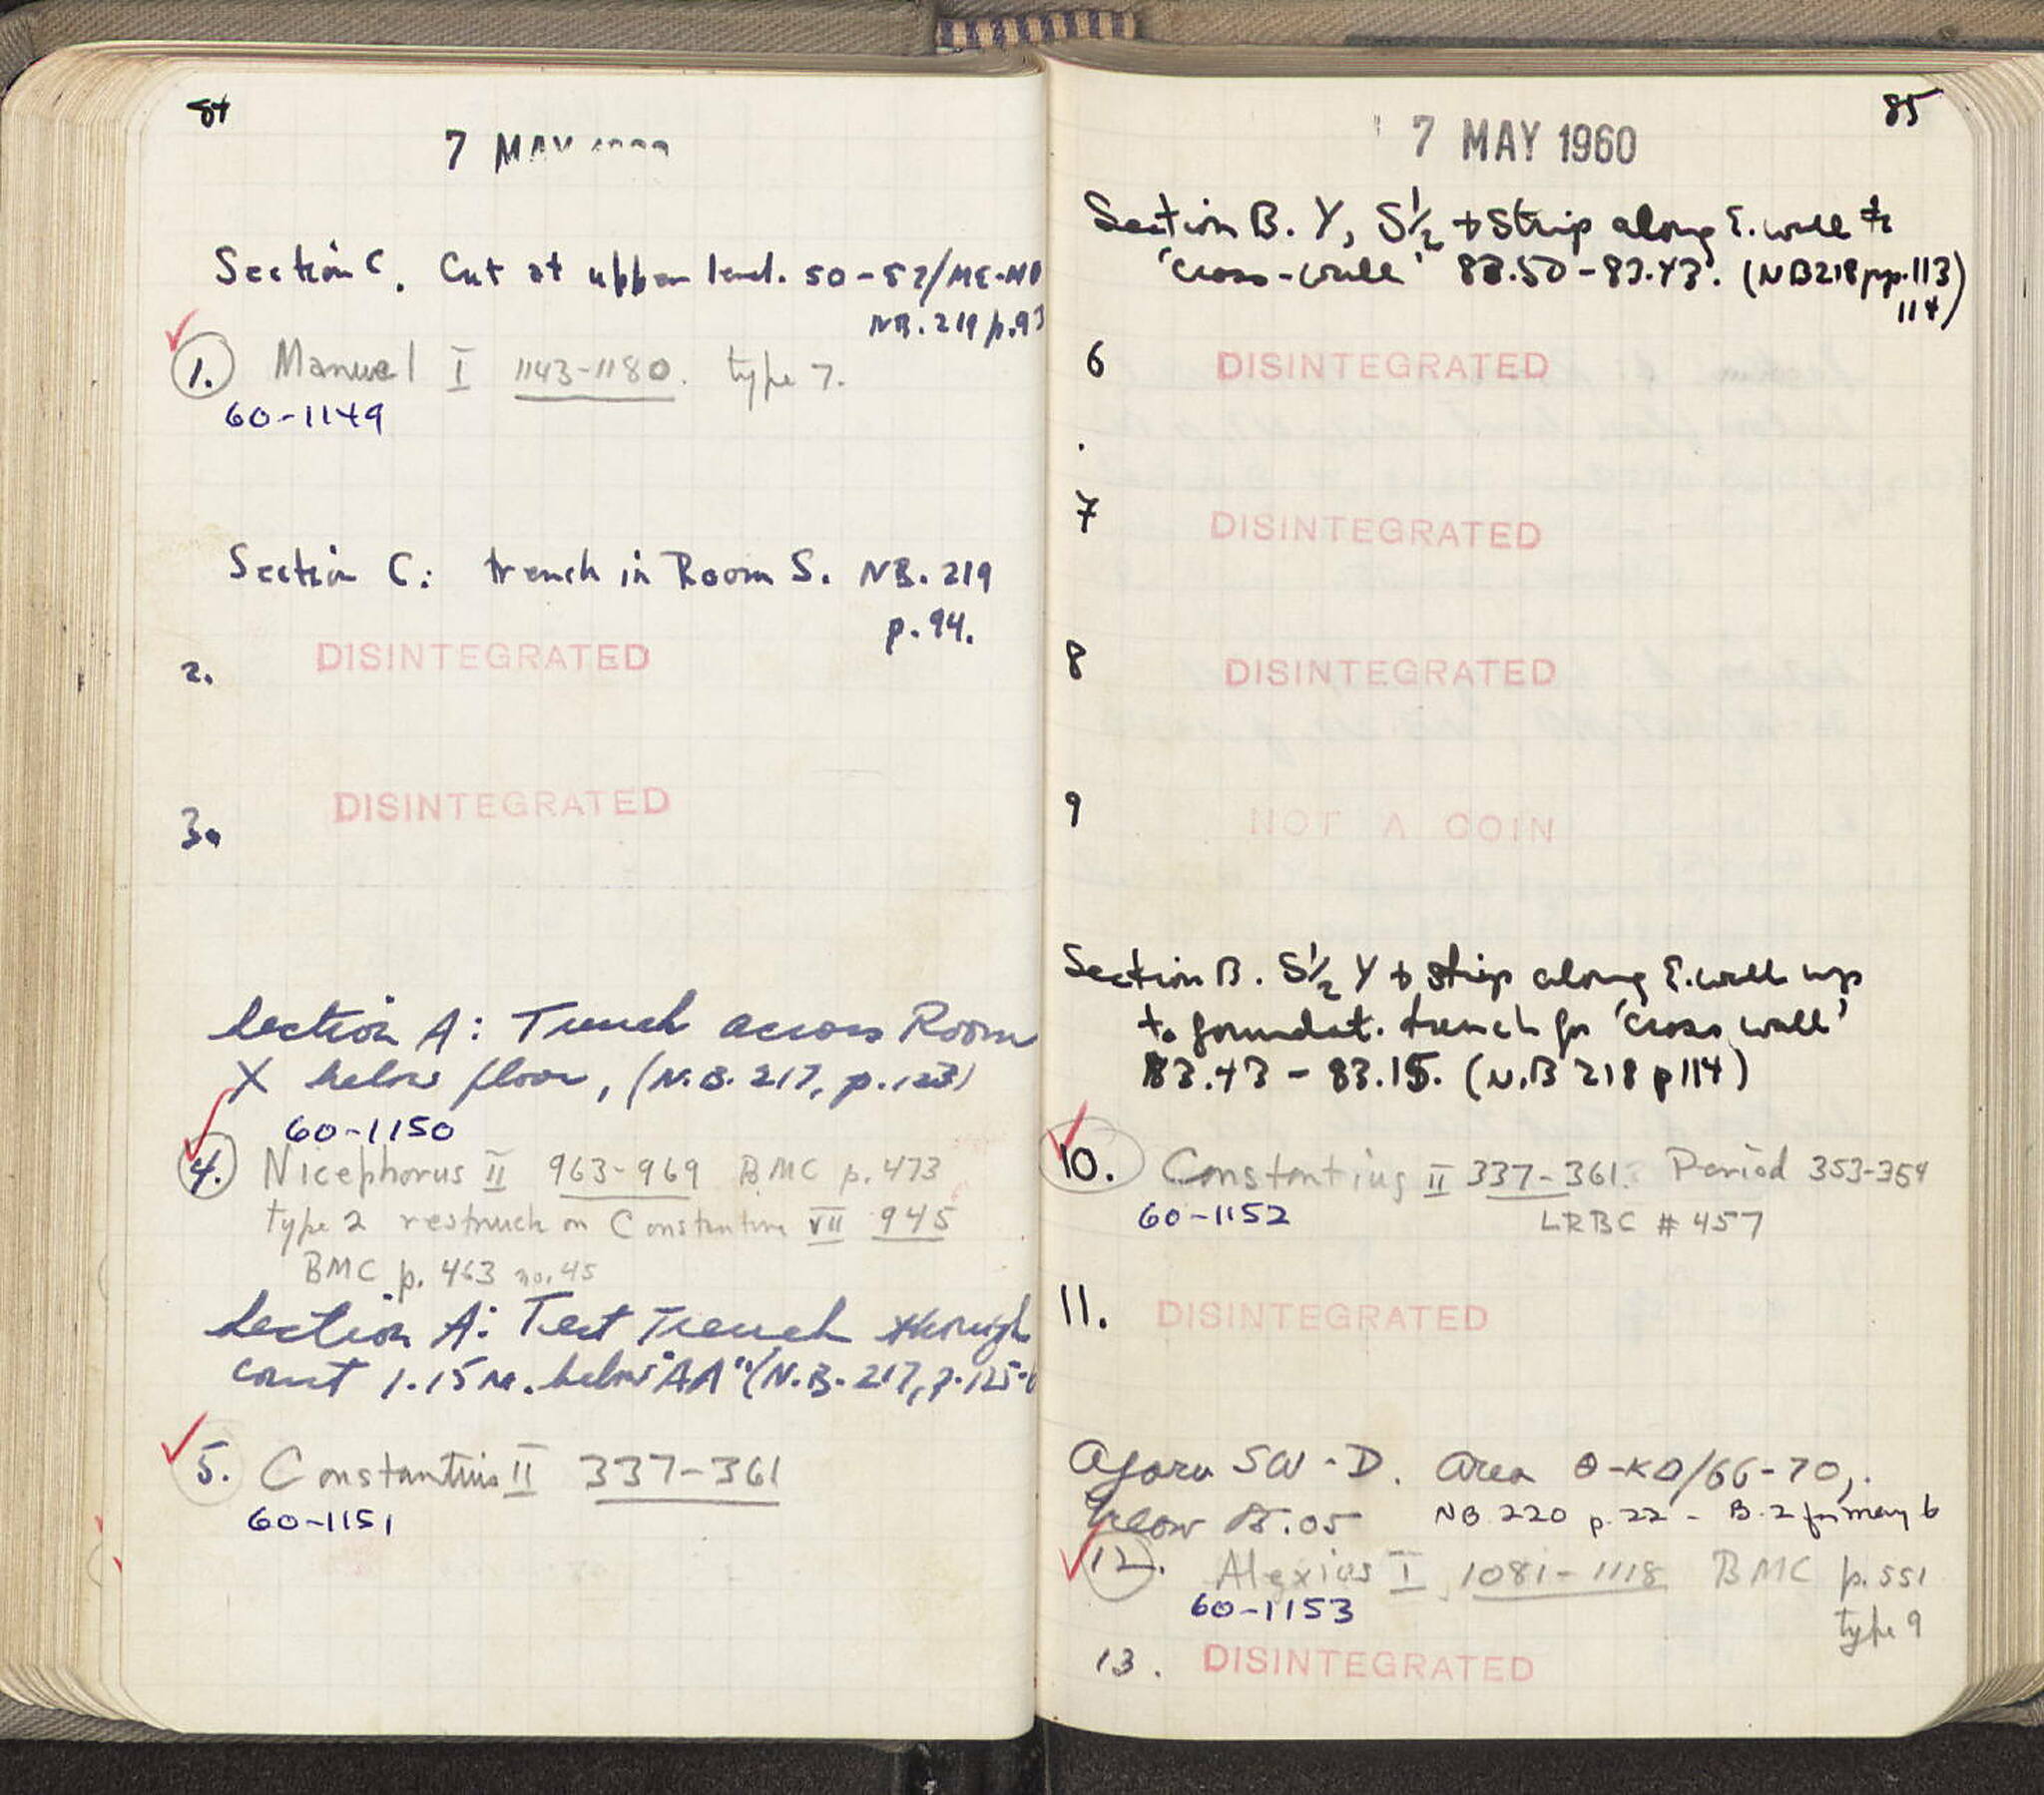 84
7 MAY
Section C. Cut at upper level. 50-52/ME-
NB. 219 p.93
1. Manuel I 1143-1180. type 7.
60-1149
Section C: trench in Room S. NB. 219
p. 94.
DISINTEGRATED
2.
DISINTEGRATED
3.
Section A: Trench across Room
X below floor, (N.B. 217, p. 123)
60-1150
4. Nicephorus II 963-969 BMC p. 473
type 2 restruck on Constantine VII 945
BMC p. 463 no. 45
Section A: Test Trench through
court 1.15 m. below "AA" (N.B. 217, p. 125-
5. Constantius II 337-361
60-1151
85
7 MAY 1960
Section B. Y, S½ + Strip along E. wall to
'cross-wall' 83.50-83.43. (NB218 pp. 113
114)
6 DISINTEGRATED
7 DISINTEGRATED
8 DISINTEGRATED
9 NOT A COIN
Section B. S½ Y + strip along E. wall up
to foundat. trench for 'cross wall'
83.43 - 83.15. (N.B 218 p 114)
10. Constantius II 337-361. Period 353-354
60-1152 LRBC # 457
11. DISINTEGRATED
Agora SW-D. Area Θ-ΚΔ/66-70,
below 85.05 NB 220 p. 22 - B. 2 for May 6
12. Alexius I 1081-1118 BMC p. 551
60-1153
type 9
13. DISINTEGRATED